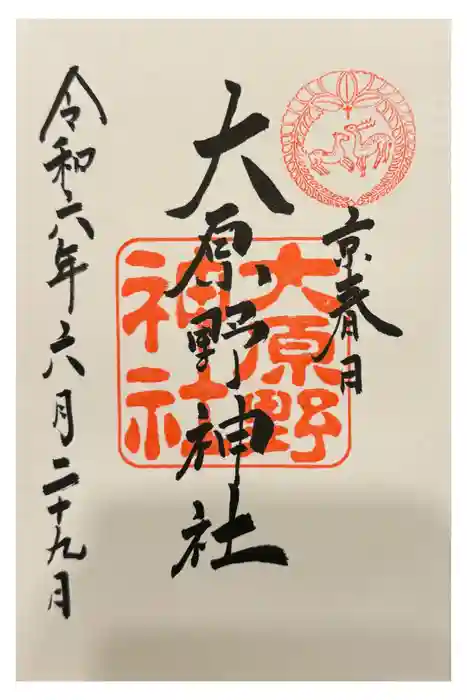 京春日
大原野神社
大原野
神社
令和六年六月二十九日